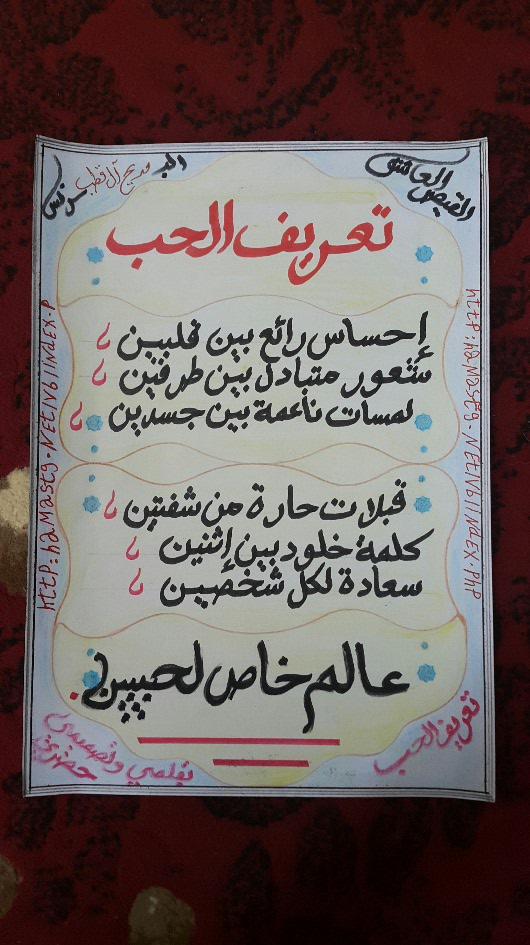 القيصر العاشق
البرنس مديح آل قطب
تعريف الحب
إحساس رائع بين قلبين؟
شعور متبادل بين طرفين؟
لمسات ناعمة بين جسدين؟
قبلات حارة من شفتين؟
كلمة خلود بين إثنين؟
سعادة لكل شخصين؟
عالم خاص لحبيبين.
تعريف الحب
بقلمي وتصميمي
حضرني
http:hamastg.NET/Vb/index.P
http:hamastg.NET/Vb/index.PHP